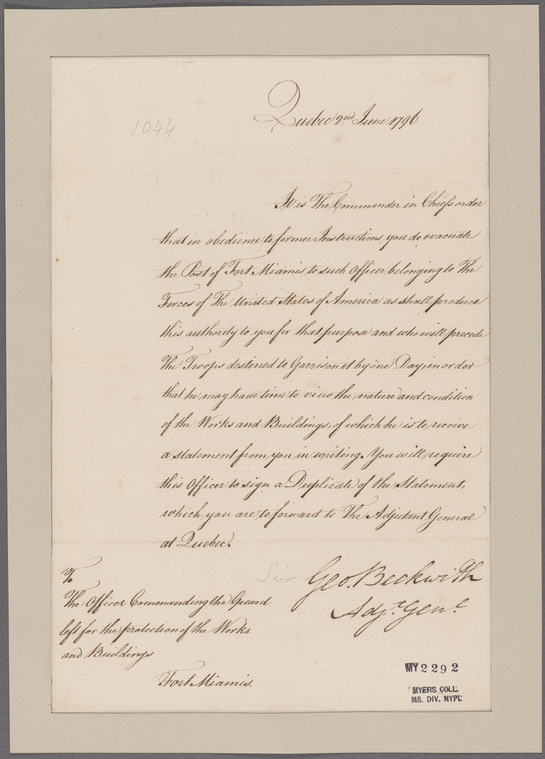 1044
Quebec 2nd June 1796
It is The Commander in Chiefs order
that in obedience to former Instructions you do evacuate
the Post of Fort Miamis to such Officer belonging to The
Forces of The United States of America as shall produce
this authority to you for that purpose and who will precede
The Troops destined to Garrison it by one Day, in order
that he may have time to view the nature and condition
of the Works and Buildings, of which he is to receive
a statement from you in writing. You will require
this Officer to sign a Duplicate of the Statement,
which you are to forward to The Adjutant General
at Quebec.
Geo. Beckwith
Adjt. Genl.
To
The Officer Commanding the Guard
left for the protection of the Works
and Buildings
Fort Miamis.
MY 2292
MYERS COLL.
MS. DIV. NYPL